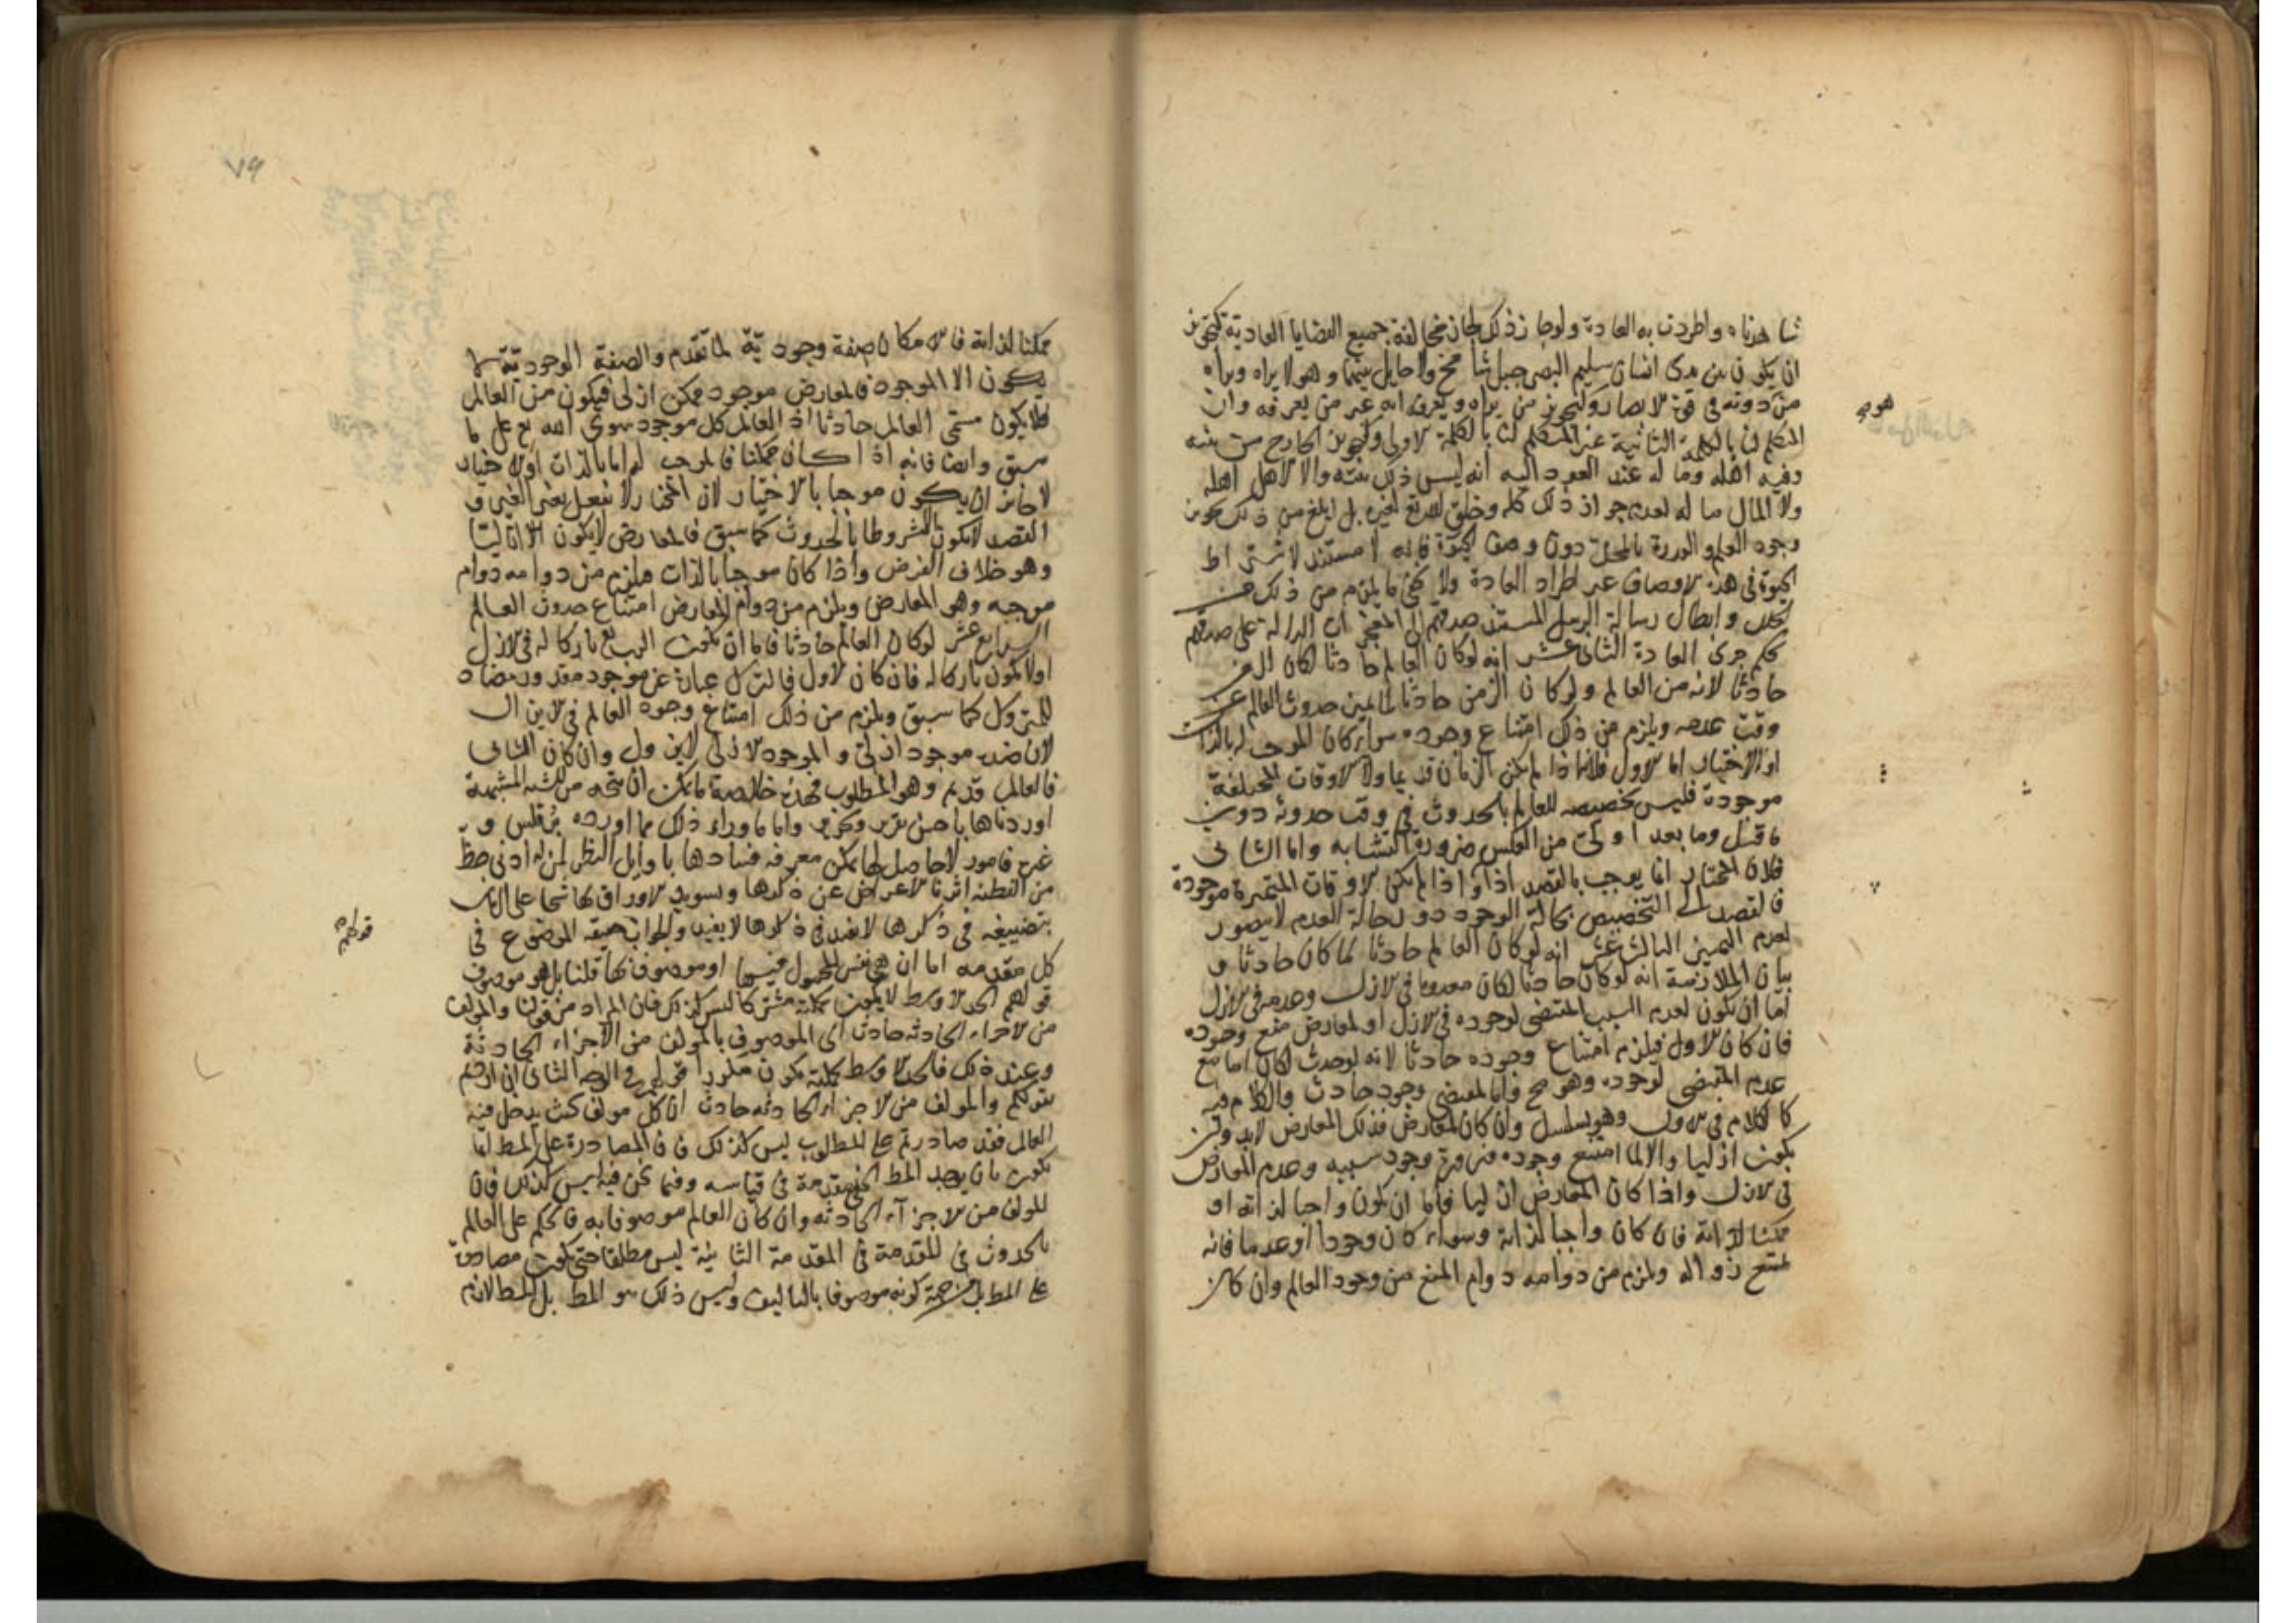 شاهدناه واطردت به العادة ولو جاز ذلك لجاز مخالفة جميع القضايا العادية كتجويز
ان يكون بين يدى انسان سليم البصر جبل شامخ ولا حايل بينهما وهو لا يراه ويراه
من دونه فى قوة الابصار وتجويز من يراه ويعرفه انه غير من يعرفه وان
المتكلم لنا بالكلمة الثانية غير المتكلم لنا بالكلمة الاولى وتجويز الخارج من بيته
وفيه اهله وماله عند العود اليه انه ليس ذلك بيته ولا الاهل اهله
ولا المال ماله لعدم جواز ذلك كله وخلق الله تع لغيره بل ابلغ من ذلك تجويز
وجود العلم والقدرة بالمحل دون وصف الحيوة فانه لا مستند لاشتراط
الحيوة فى هذه الاوصاف غير اطراد العادة ولا يخفى ما يلزم من ذلك من
وابطال رسالة الرسل المستند صدقهم الى المعجزات الدالة على صدقهم
بحكم جرى العادة الثانى عشر انه لو كان العالم حادثا لكان الزمن
حادثا لانه من العالم ولو كان الزمن حادثا لما تعين حدوث العالم عن
وقت عدمه ويلزم من ذلك امتناع وجوده سواء كان الموجب له بالذات
او الاختيار اما الاول فلانه اذا لم يكن الزمان قديما ولا الاوقات المختلفة
موجودة فليس تخصيصه للعالم بالحدوث فى وقت حدوثه دون
ما قبل وما بعد اولى من العكس ضرورة التشابه واما الثانى
فلان المختار انما يوجب بالقصد اذا واذا لم يكن الاوقات المتميزة موجودة
فالقصد الى التخصيص بحالة الوجود دون حالة العدم لا يتصور
لعدم التمييز الثالث عشر انه لو كان العالم حادثا لما كان حادثا و
بيان الملازمة انه لو كان حادثا لكان معدوما فى الازل وعدمه فى الازل
اما ان يكون لعدم السبب المقتضى لوجوده فى الازل او لمعارض منع وجوده
فان كان الاول فيلزم امتناع وجوده حادثا لانه لو حدث لكان اما مع
عدم المقتضى لوجوده وهو مح واما لمقتضى وجود حادث والكلام فيه
كالكلام فى الاول وهو تسلسل وان كان لمعارض فذلك المعارض لابد وان
يكون ازليا والا لما امتنع وجوده ضرورة وجود سببه وعدم المعارض
فى الازل واذا كان المعارض ازليا فاما ان يكون واجبا لذاته او
ممكنا لذاته فان كان واجبا لذاته وسواء كان وجودا او عدما فانه
يمتنع زواله ويلزم من دوامه دوام المنع من وجود العالم وان كان
٧٩
ممكنا لذاته فالامكان صفة وجودية لما تقدم والصفة الوجودية لا
يكون الا لموجود فالمعارض موجود ممكن ازلى فيكون من العالم
فلا يكون مسمى العالم حادثا اذ العالم كل موجود سوى الله تع على ما
سبق وايضا فانه اذا كان ممكنا فالموجب له اما بالذات او الاختيار
لا جائز ان يكون موجبا بالاختيار لان المختار لا يفعل بغير القصد و
القصد لا يكون الا مشروطا بالحدوث كما سبق فالمعارض لا يكون ازليا
وهو خلاف الفرض واذا كان موجبا بالذات فيلزم من دوامه دوام
موجبه وهو المعارض ويلزم من دوام المعارض امتناع حدوث العالم
الرابع عشر لو كان العالم حادثا فاما ان يكون الرب تع تاركا له فى الازل
او لا يكون تاركا له فان كان الاول فالترك عبارة عن موجود مقدور مضاد
للمتروك كما سبق ويلزم من ذلك امتناع وجود العالم فى لايزال
لان ضده موجود ازلى والموجود الازلى لا يزول وان كان الثانى
فالعالم قديم وهو المطلوب فهذه خلاصة ما يمكن ان يتجه من الشبه
اوردناها باحسن تقرير وتحرير واما ما وراء ذلك مما اورده برقلس و
غيره فامور لا حاصل لها يمكن معرفة فسادها باوايل النظر لمن له ادنى حظ
من الفطنة اثرنا الاعراض عن ذكرها وتسويد الاوراق بها شحا على الزمان
بتضييعه فى ذكرها لا يفيد والجواب الموضوع فى
كل مقدمة اما ان هو نفس المحمول فيها او موصوف بها قلنا بل هو موصوف
قولهم الحد الاوسط لا يكون بكليته مشتركا ليس كذلك فان المراد من قولنا والمؤلف
من الاجزاء الحادثة حادث اى الموصوف بالمؤلف من الاجزاء الحادثة
وعند ذلك فالحد الاوسط بكليته يكون متكررا قولهم فى الوجه الثانى ان اردتم
بقولكم والمولف من الاجزاء الحادثة حادث ان كل مولف كذا يدخل فيه
العالم فقد صادرتم على المطلوب ليس كذلك فان المصادرة على المط انما
يكون بان يوجد المط مقدمة فى قياسه وفيما نحن فيه ليس كذلك فان
المولف من الاجزاء الحادثة وان كان العالم موصوفا به فالحكم على العالم
بالحدوث فى المقدمة الثانية ليس مطلقا حتى يكون مصادرة
على المط بل من جهة كونه موصوفا بالتاليف وليس ذلك هو المط بل المط لازم
قولهم